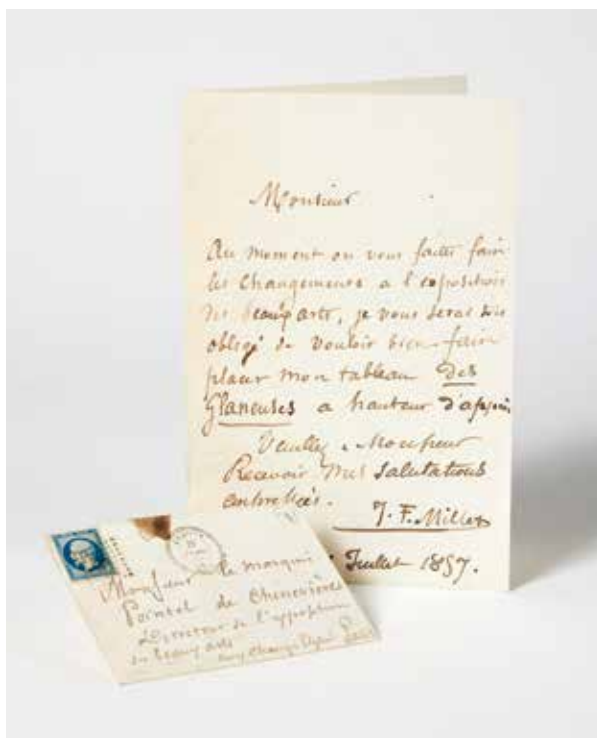 Monsieur
Au moment ou vous faites faire
les changements a l'exposition
des beaux arts, je vous serai très
obligé de vouloir bien faire
placer mon tableau des
Glaneuses a hauteur d'appui
Veuillez, Monsieur
Recevoir mes salutations
J. F. Millet
Juillet 1857.
Monsieur le marquis
Pointel de Chenevières
Directeur de l'exposition
des beaux arts
aux Champs Paris